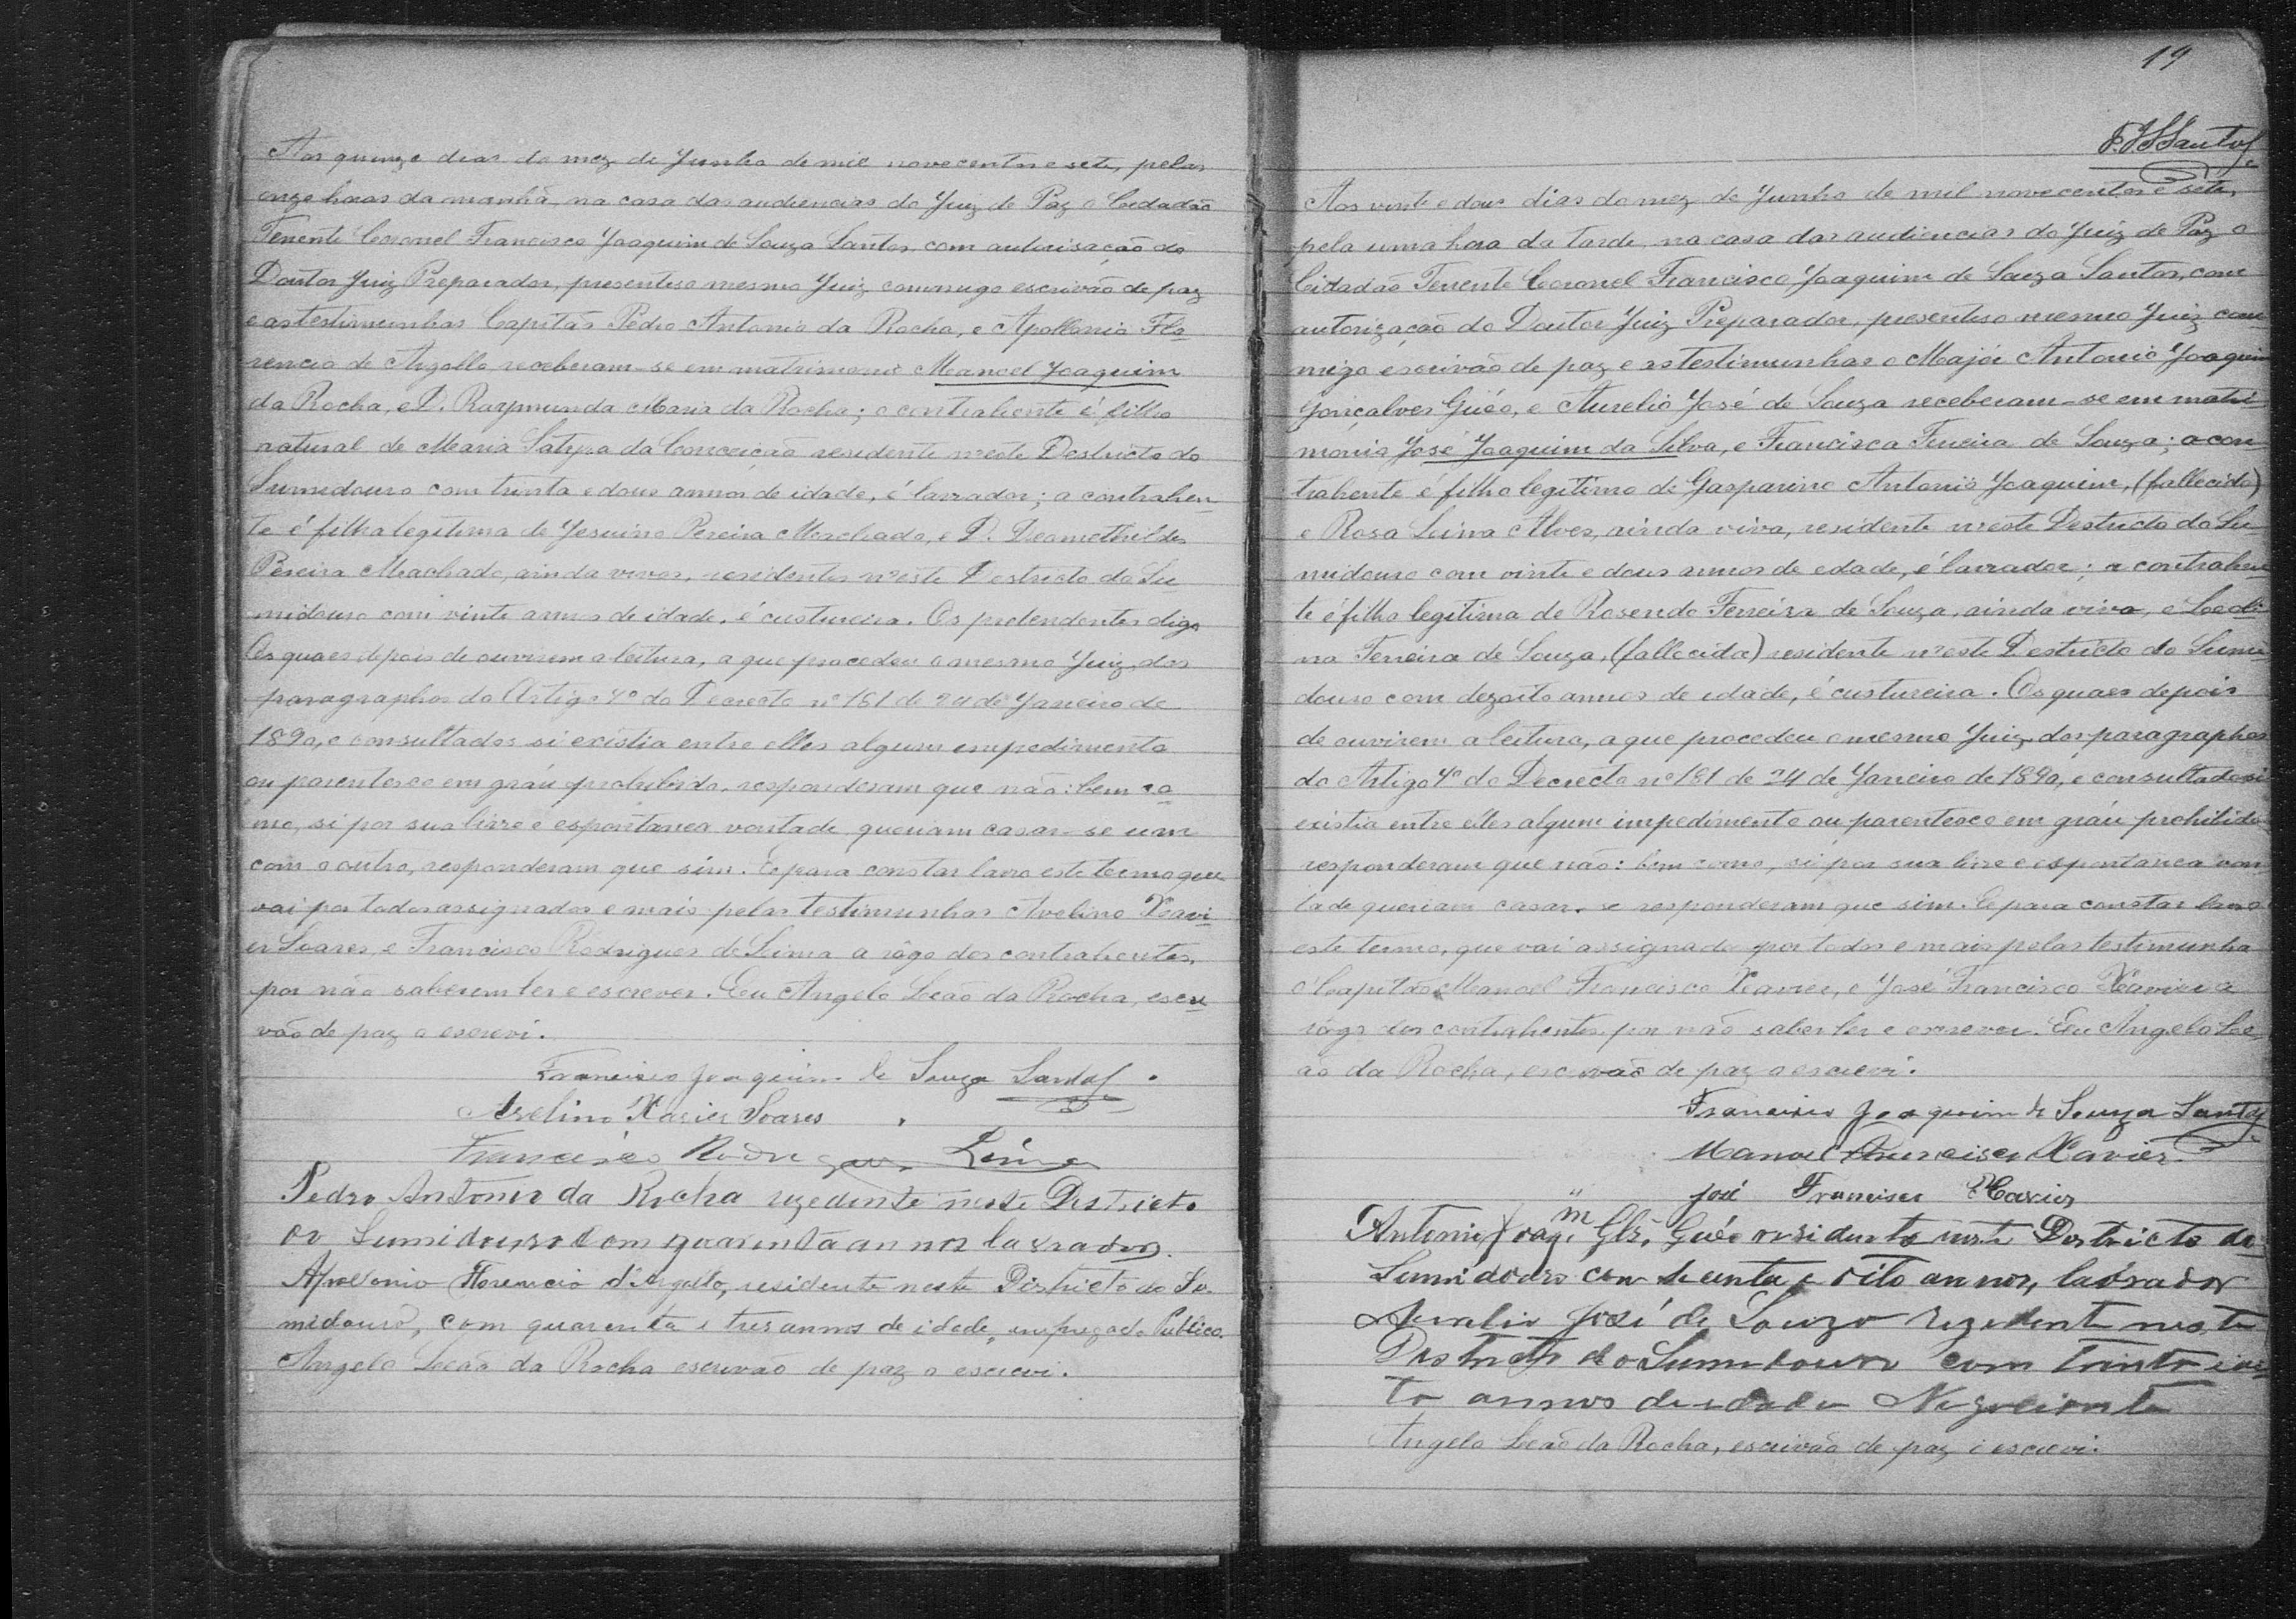 Aos quinze dias do mez de Junho de mil novecentos e sete, pelas
onze horas da manhã, na casa das audiencias do Juiz de Paz o Cidadão
Tenente Coronel Francisco Joaquim de Souza Santos, com autorisação do
Doutor Juiz Preparador, presentes o mesmo Juiz commigo escrivão de paz
e as testimunhas Capitão Pedro Antonio da Rocha, e Apollonio Flo-
rencio de Argollo receberam-se em matrimonio Manoel Joaquim
da Rocha, e D. Raymunda Maria da Rocha; o contrahente é filho
natural de Maria Satyra da Conceição residente n'este Destricto do
Sumidouro com trinta e dous annos de idade, é lavrador; a contrahen-
te é filha legitima de Jesuino Pereira Machado, e D. Deomethildes
Pereira Machado, ainda vivos, residentes n'este Destricto do Su
midouro com vinte annos de idade, é custureira. Os pretendentes digo
Os quaes depois de ouvirem a leitura, a que procedeu o mesmo Juiz, dos
paragraphos do Artigo 7º do Decreto nº 181 de 24 de Janeiro de
1890, e consultados si existia entre elles algum empedimento
ou parentesco em gráu prohibido, responderam que não: bem co-
mo, si por sua livre e espontanea vontade queriam casar-se um
com o outro, responderam que sim. E para constar lavro este termo que
vai por todos assignados e mais pelas testimunhas Avelino Xavi-
er Soares, e Francisco Rodrigues de Lima a rôgo dos contrahentes,
por não saberem ler e escrever. Eu Angelo Leão da Rocha, escri-
vão de paz o escrevi.
Francisco Joaquim de Souza Santos.
Avelino Xavier Soares
Francisco Rodrigues Lima
Pedro Antonio da Rocha rezedente neste Destricto
do Sumidouro com quarenta annos lavrador.
Apolonio Florencio d'Argollo, residente neste Districto do Su-
midouro, com quarenta e tres annos de idade, empregado Publico.
Angelo Leão da Rocha escrivão de paz o escrevi.
19
F.J.S.Santos
Aos vinte e dous dias do mez de Junho de mil novecentos e sete,
pela uma hora da tarde, na casa das audiencias do Juiz de Paz o
Cidadão Tenente Coronel Francisco Joaquim de Souza Santos, com
autorização do Doutor Juiz Preparador, presentes o mesmo Juiz com
migo escrivão de paz e as testimunhas o Major Antonio Joaquim
Gonçalves Guéo, e Aurelio José de Souza receberam-se em matri-
monio José Joaquim da Silva, e Francisca Ferreira de Souza; o con
trahente é filho legitimo de Gasparino Antonio Joaquim, (fallecido)
e Rosa Lima Alves, ainda viva, residente n'este Destricto do Su-
midouro com vinte e dous annos de edade, é lavrador; a contrahen-
te é filha legitima de Rosendo Ferreira de Souza, ainda vivo, e Leodi-
na Ferreira de Souza, (fallecida) residente n'este Destricto do Sumi-
douro com dezoito annos de idade, é custureira. Os quaes depois
de ouvirem a leitura, a que procedeu o mesmo Juiz, dos paragraphos
do Artigo 7º do Decreto nº 181 de 24 de Janeiro de 1890, e consultados si
existia entre elles algum impedimento ou parentesco em gráu prohibido
responderam que não: bem como, si por sua livre e espontanea von
tade queriam casar-se responderam que sim. E para constar lavro
este termo, que vai assignado por todos e mais pelas testimunha
o Capitão Manoel Francisco Xavier, e José Francisco Xavier a
rôgo dos contrahentes, por não saber ler e escrever. Eu Angelo Le-
ão da Rocha, escrivão de paz o escrevi.
Francisco Joaquim de Souza Santos
Manoel Francisco Xavier
José Francisco Xavier
Antonio Joaqm Glz. Guéo residente neste Destricto do
Sumidouro com trenta e oito annos, lavrador
Aurelio José de Souza rezedent neste
Destricto do Sumidouro com trinta e oi-
to annos de idade Negociante
Angelo Leão da Rocha, escrivão de paz o escrevi.